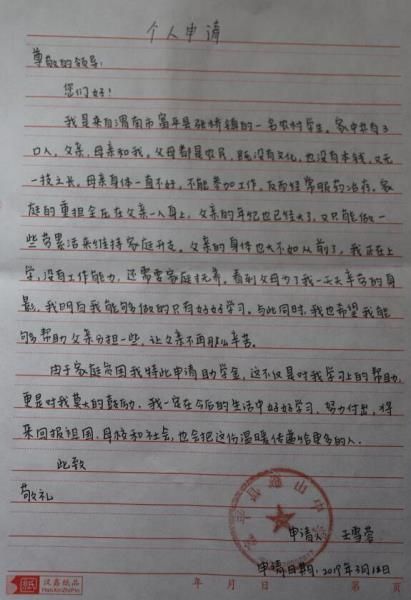 个人申请
尊敬的领导:
您们好!
我是来自渭南市富平县张桥镇的一名农村学生。家中共有3
口人,父亲,母亲和我。父母都是农民,既没有文化,也没有本钱,又无
一技之长。母亲身体一直不好,不能参加工作,反而经常服药治疗。家
庭的重担全压在父亲一人身上。父亲的年纪也已经大了,又只能做一
些劳累活来维持家庭开支。父亲的身体也大不如从前了,我正在上
学,没有工作能力,还需要家庭扶养。看到父母为了我一天天辛苦的身
影,我明白我能够做的只有好好学习。与此同时,我也希望我能
够帮助父亲分担一些,让父亲不再那么辛苦。
由于家庭贫困我特此申请助学金,这不仅是对我学习上的帮助,
更是对我莫大的鼓励。我一定在今后的生活中好好学习,努力付出,将
来回报祖国,母校和社会,也会把这份温暖传递给更多的人。
此致
敬礼
申请人 王雪蓉
申请日期:2019年3月18日
汉鑫纸品
HanXinZhiPin
年 月 日 第 页